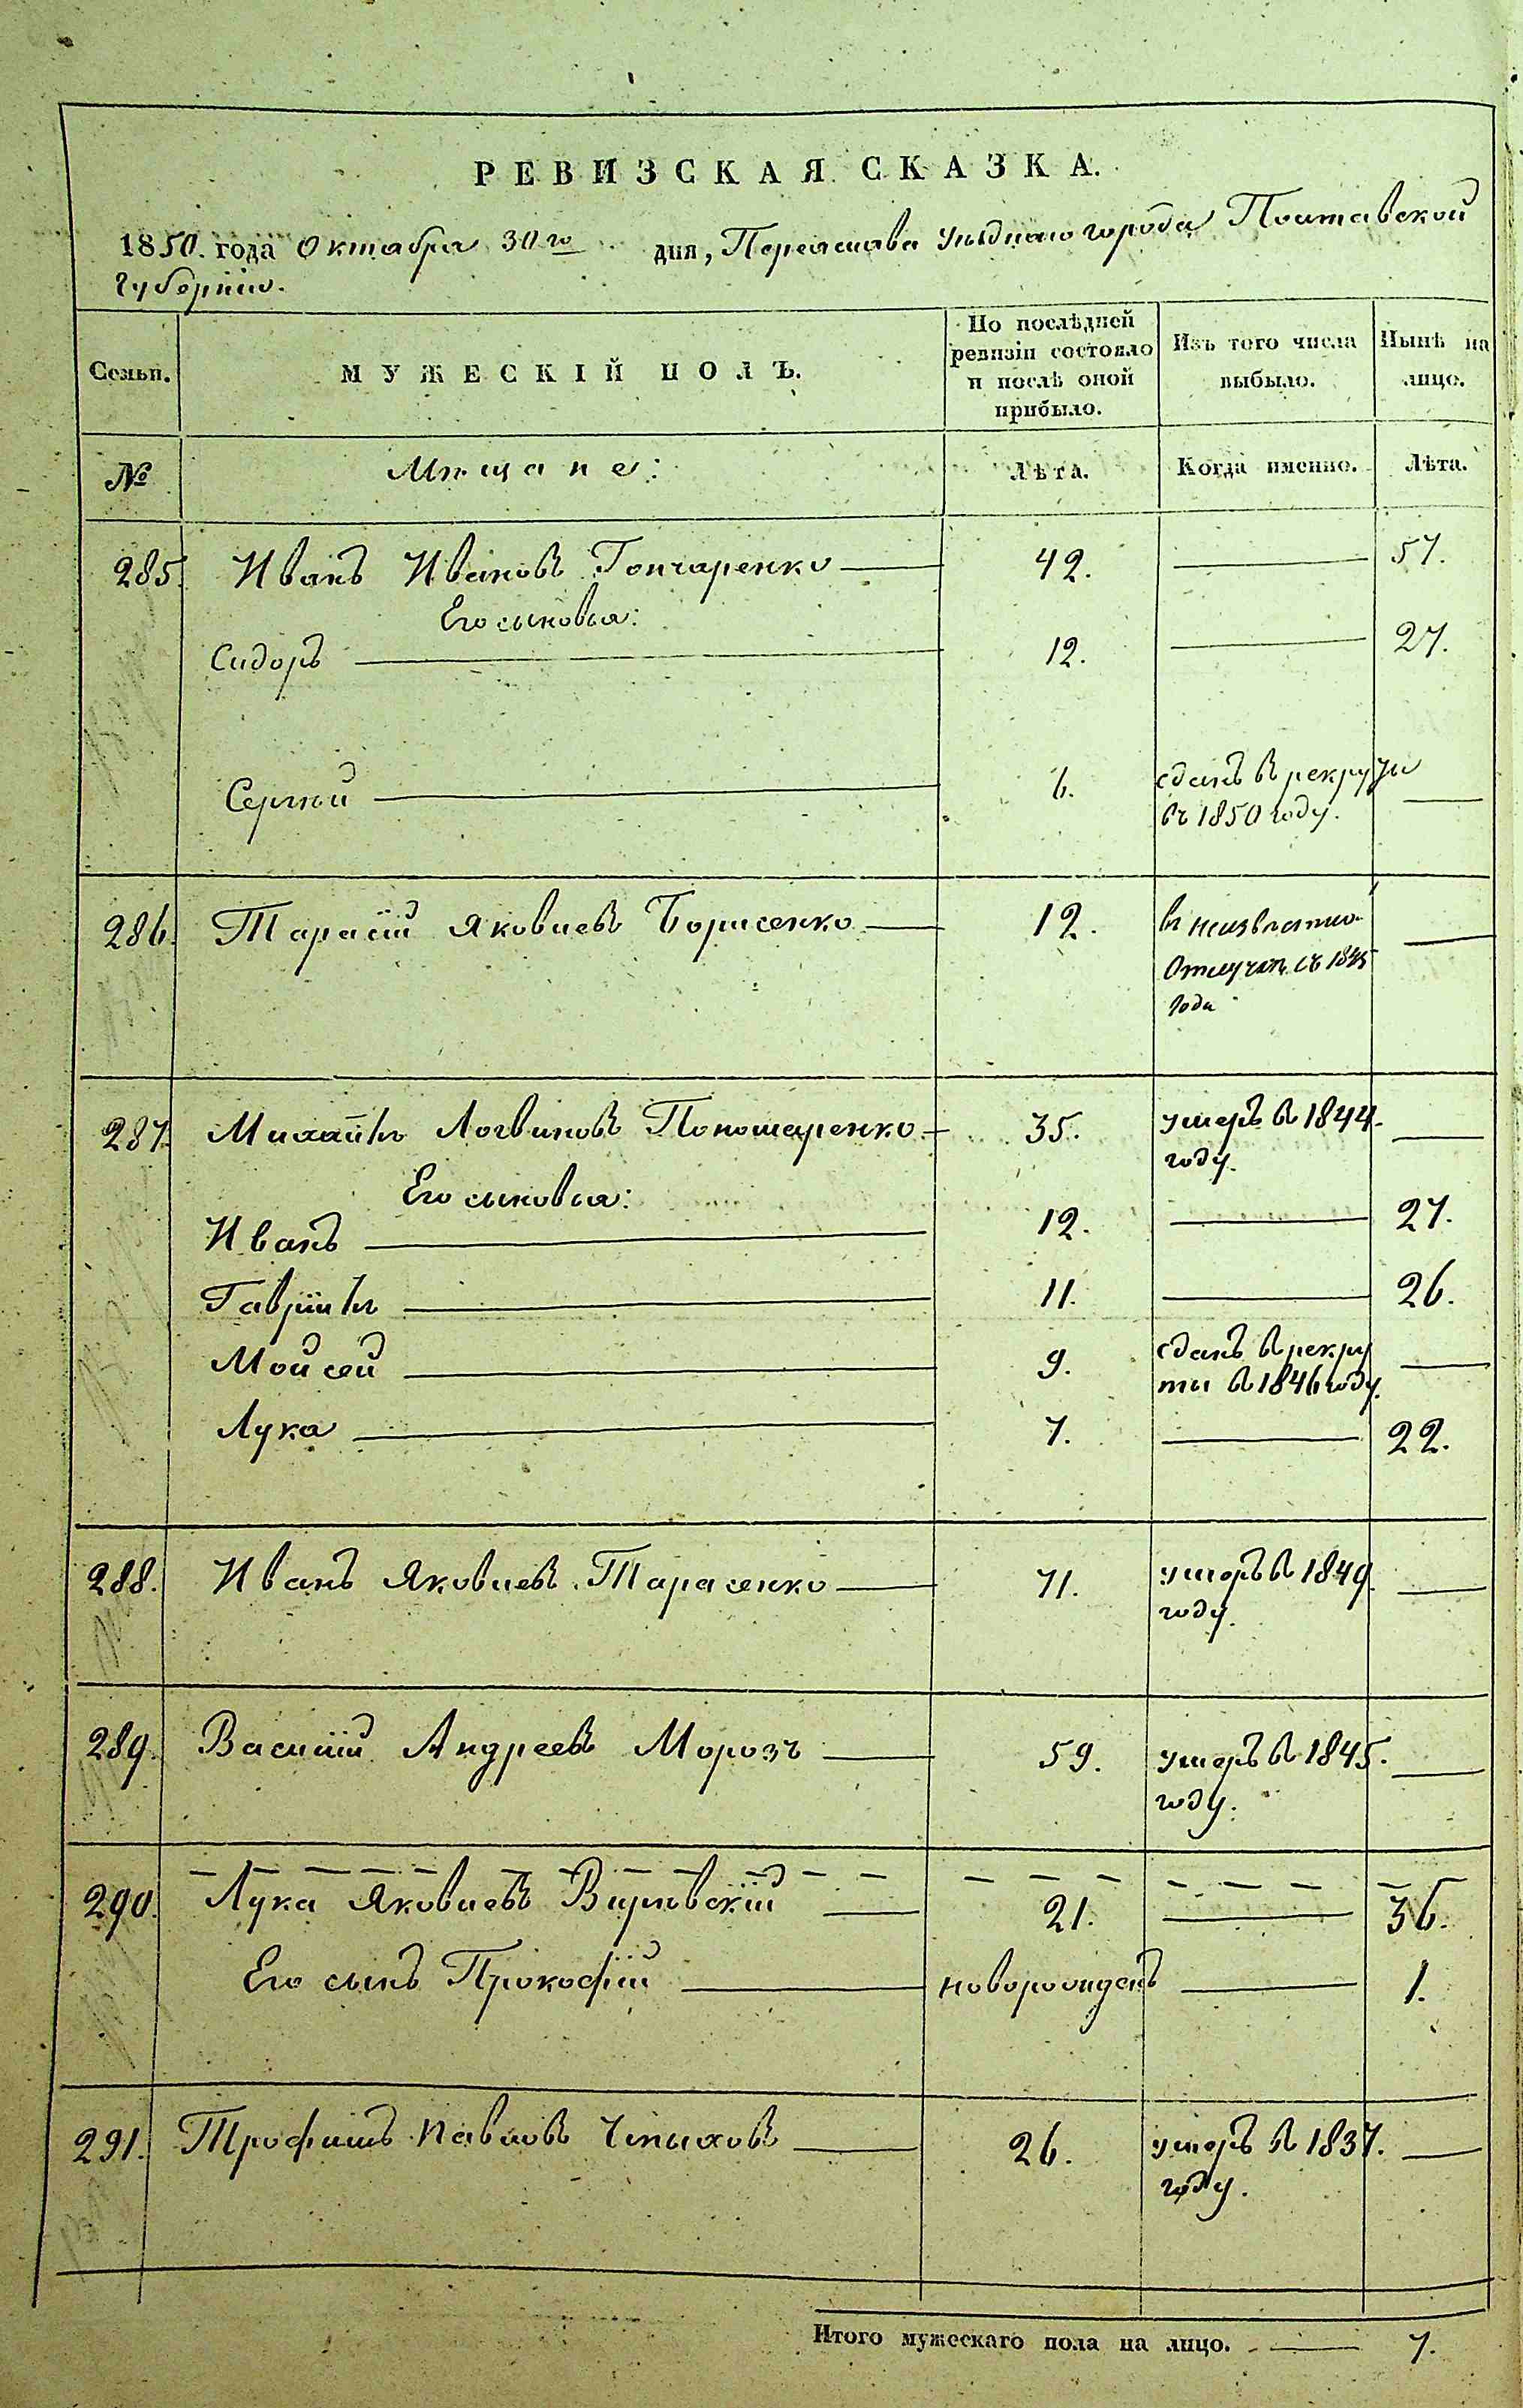 РЕВИЗСКАЯ СКАЗКА.
1850. года Октября 30го дня, Переяслава Уѣзднаго города Полтавской
Губерніи.
Семьи. МУЖЕСКІЙ ПОЛЪ. По послѣдней ревизіи состояло и послѣ оной прибыло. Изъ того числа выбыло. Нынѣ на лицо.
№ Мѣщане: Лѣта. Когда именно. Лѣта.
285. Иванъ Ивановъ Гончаренко — 42. — 57.
Его сыновья:
Сидоръ — 12. — 27.
Сергѣй — 6. сданъ въ рекруты —
въ 1850 году.
286. Тарасій Яковлевъ Борисенко — 12. въ неизвѣстно- —
отлучкѣ съ 1845
года
287. Михайлъ Логвиновъ Пономаренко — 35. умеръ въ 1844. —
году.
Его сыновья:
Иванъ — 12. — 27.
Гавріилъ — 11. — 26.
Мойсей — 9. сданъ въ рекру —
ты въ 1846 году.
Лука — 7. — 22.
288. Иванъ Яковлевъ Тарасенко — 71. умеръ въ 1849 —
году.
289. Василій Андреевъ Морозъ — 59. умеръ въ 1845. —
году.
290. Лука Яковлевъ — 21. — 36.
Его сынъ Прокофій — новорожденъ — 1.
291. Трофимъ Павловъ — 26. умеръ въ 1837. —
году.
Итого мужескаго пола на лицо. — 7.